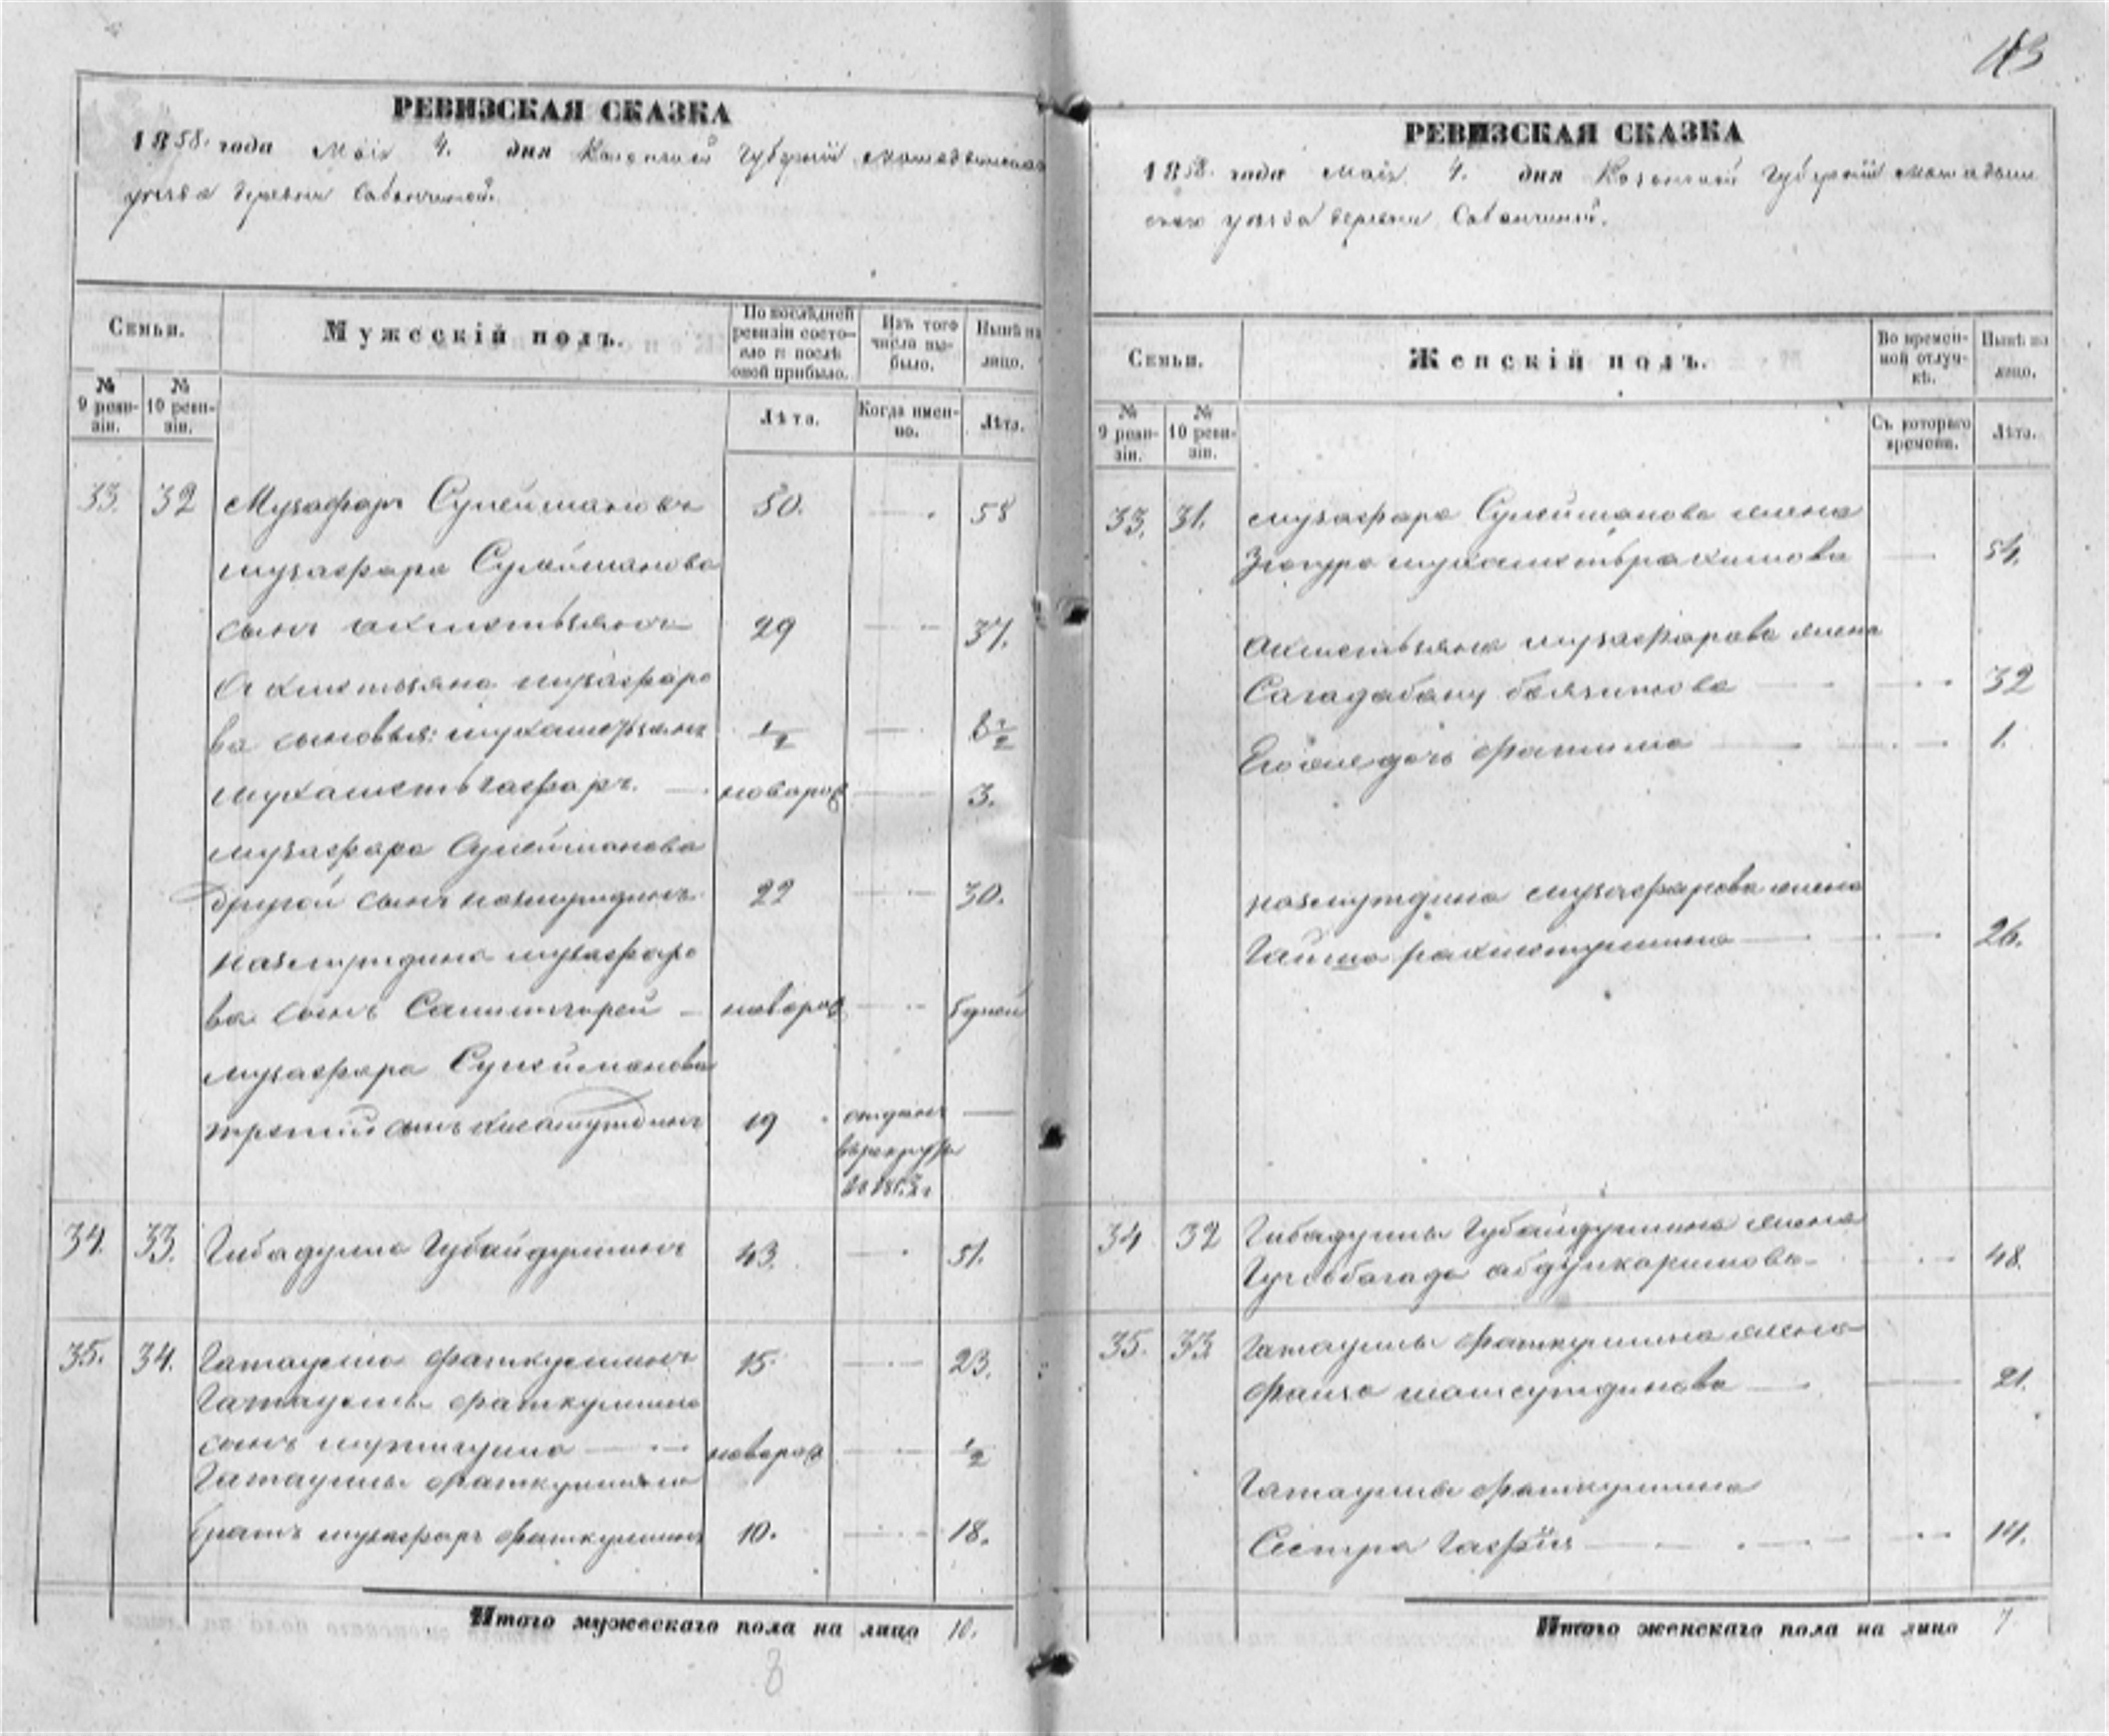 113
РЕВИЗСКАЯ СКАЗКА
1858 года Маія 4. дня Казанской Губерніи Мамадышскаго
уѣзда деревни Сабанчиной.
Семьи.
Мужескій полъ.
По послѣдней ревизіи состояло и послѣ оной прибыло.
Изъ того числа выбыло.
Нынѣ на лицо.
№ 9 ревизіи.
№ 10 ревизіи.
Лѣта.
Когда именно.
Лѣта.
33. 32 Музафаръ Сулеймановъ 50. — 58
музафара Сулейманова
сынъ ахметьзянъ 29 — 37.
Ахметьзяна музафаро
ва сыновья: мухаметзянъ ½ — 8½
мухаметьгафаръ. — новорож — 3.
музафара Сулейманова
другой сынъ назмутдинъ 22 — 30.
назмутдина музафаро
ва сынъ Салимгирей — новорож —
музафара Сулейманова
третій сынъ 19 отданъ —
въ рекруты
34. 33. Гибадулла Губайдуллинъ 43. — 51.
35. 34. Гатаулла Фаткуллинъ 15 — 23.
Гатауллы Фаткуллина
сынъ — новорож — ½
Гатауллы Фаткуллина
братъ музафаръ Фаткуллинъ 10. — 18.
Итого мужескаго пола на лицо 10.
8
РЕВИЗСКАЯ СКАЗКА
1858 года Маія 4. дня Казанской Губерніи Мамадыш
скаго уѣзда деревни Сабанчиной.
Семьи.
Женскій полъ.
Во временной отлучкѣ.
Нынѣ на лицо.
№ 9 ревизіи.
№ 10 ревизіи.
Съ котораго времени.
Лѣта.
33. 31. музафара Сулейманова жена
Зюгра мухаметьрахимова — 54.
Ахметьзяна музафарова жена
Сагадабану — 32
Его же дочь фатима — 1.
назмутдина музафарова жена
Гайша рахметуллина — 26.
34 32 Гибадуллы Губайдуллина жена
абдулкаримова — 48.
35. 33 Гатауллы Фаткуллина жена
Фаиза — 21.
Гатауллы Фаткуллина
Сестра Гафія — 14.
Итого женскаго пола на лицо 7